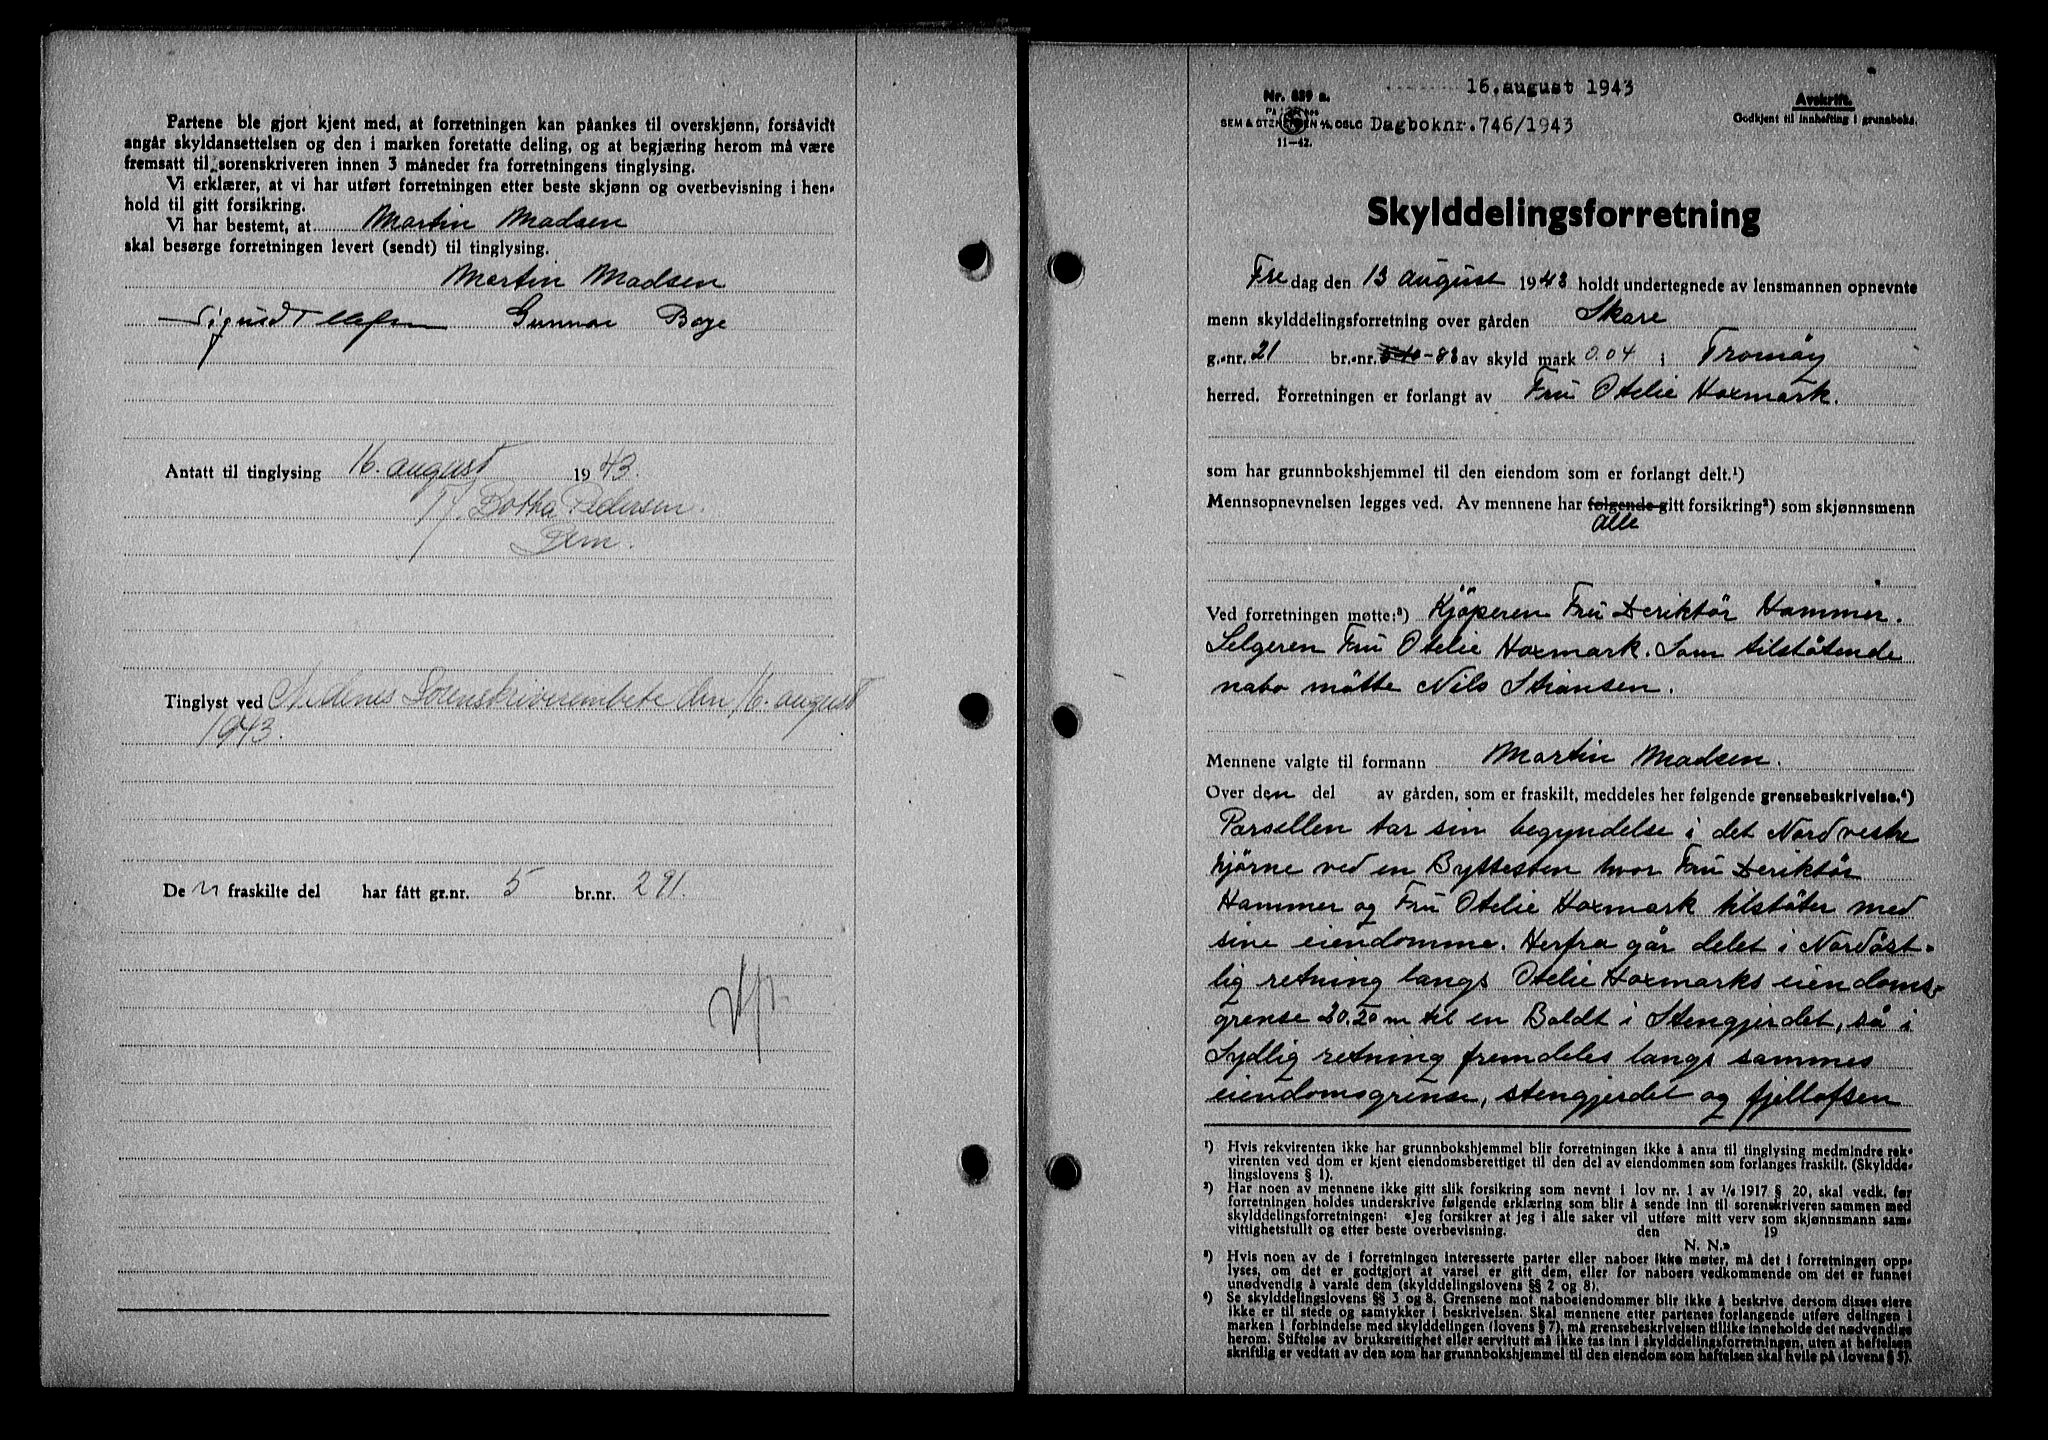 Partene ble gjort kjent med, at forretningen kan påankes til overskjønn, forsåvidt
angår skyldansettelsen og den i marken foretatte deling, og at begjæring herom må være
fremsatt til sorenskriveren innen 3 måneder fra forretningens tinglysing.
Vi erklærer, at vi har utført forretningen etter beste skjønn og overbevisning i hen-
hold til gitt forsikring.
Vi har bestemt, at Martin Madsen
skal besørge forretningen levert (sendt) til tinglysing.
Martin Madsen
Sigurd Gunnar Boye
Antatt til tinglysing 16. august 1943.
Botha Pedersen
Tinglyst ved Nedenes Sorenskriverembete den 16. august
1943.
Den fraskilte del har fått gr.nr. 5 br.nr. 291.
16. august 1943
Nr. 889 a.
SEM & STENERSEN A/S, OSLO
11-42.
Dagboknr. 746/1943
Avskrift.
Godkjent til innhefting i grunnboka.
Skylddelingsforretning
Fre dag den 13 august 1943 holdt undertegnede av lensmannen opnevnte
menn skylddelingsforretning over gården Skare
g.-nr. 21 br.-nr. 83 av skyld mark 0.04 i Tromøy
herred. Forretningen er forlangt av Fru Otelie Hoxmark.
som har grunnbokshjemmel til den eiendom som er forlangt delt.¹)
Mennsopnevnelsen legges ved. Av mennene har følgende gitt forsikring²) som skjønnsmenn
alle
Ved forretningen møtte:³) Kjöperen Fru Deriktör Hammer.
Selgeren Fru Otelie Hoxmark. Som tilstötende
nabo mötte Nils Stransen.
Mennene valgte til formann Martin Madsen.
Over den del av gården, som er fraskilt, meddeles her følgende grensebeskrivelse.⁴)
Parsellen tar sin begyndelse i det Nordvestre
hjörne ved en Byttesten hvor Fru Deriktör
Hammer og Fru Otelie Hoxmark tilstöter med
sine eiendomme. Herfra går delet i Nordöst-
lig retning langs Otelie Hoxmarks eiendoms-
grense 20.20 m til en Boldt i Stengjerdet, så i
Sydlig retning fremdeles langs sammes
eiendomsgrense, stengjerdet og fjellofsen
¹) Hvis rekvirenten ikke har grunnbokshjemmel blir forretningen ikke å anta til tinglysing medmindre rek-
virenten ved dom er kjent eiendomsberettiget til den del av eiendommen som forlanges fraskilt. (Skyldde-
lingslovens § 1).
²) Har noen av mennene ikke gitt slik forsikring som nevnt i lov nr. 1 av 1/6 1917 § 20, skal vedk. før
forretningen holdes underskrive følgende erklæring som blir å sende inn til sorenskriveren sammen med
skylddelingsforretningen: «Jeg forsikrer at jeg i alle saker vil utføre mitt verv som skjønnsmann sam-
vittighetsfullt og etter beste overbevisning. den 19
N. N.»
³) Hvis noen av de i forretningen interesserte parter eller naboer ikke møter, må det i forretningen opp-
lyses, om det er godtgjort at varsel er gitt dem, eller for naboers vedkommende om det er funnet
unødvendig å varsle dem (skylddelingslovens §§ 2 og 8).
⁴) Se skylddelingslovens §§ 3 og 8. Grensene mot naboeiendommer blir ikke å beskrive dersom disses eiere
ikke er til stede og samtykker i beskrivelsen. Skal mennene etter partenes forlangende utføre delingen i
marken i forbindelse med skylddelingen (lovens § 7), må grensebeskrivelsen tillike inneholde det nødvendige
herom. Stiftelse av bruksrettighet eller servitutt må ikke tas inn i skylddelingsforretningen, uten at heftelsen
skriftlig er vedtatt av den som har grunnbokshjemmel til den eiendom som heftelsen skal hvile på (lovens § 5).